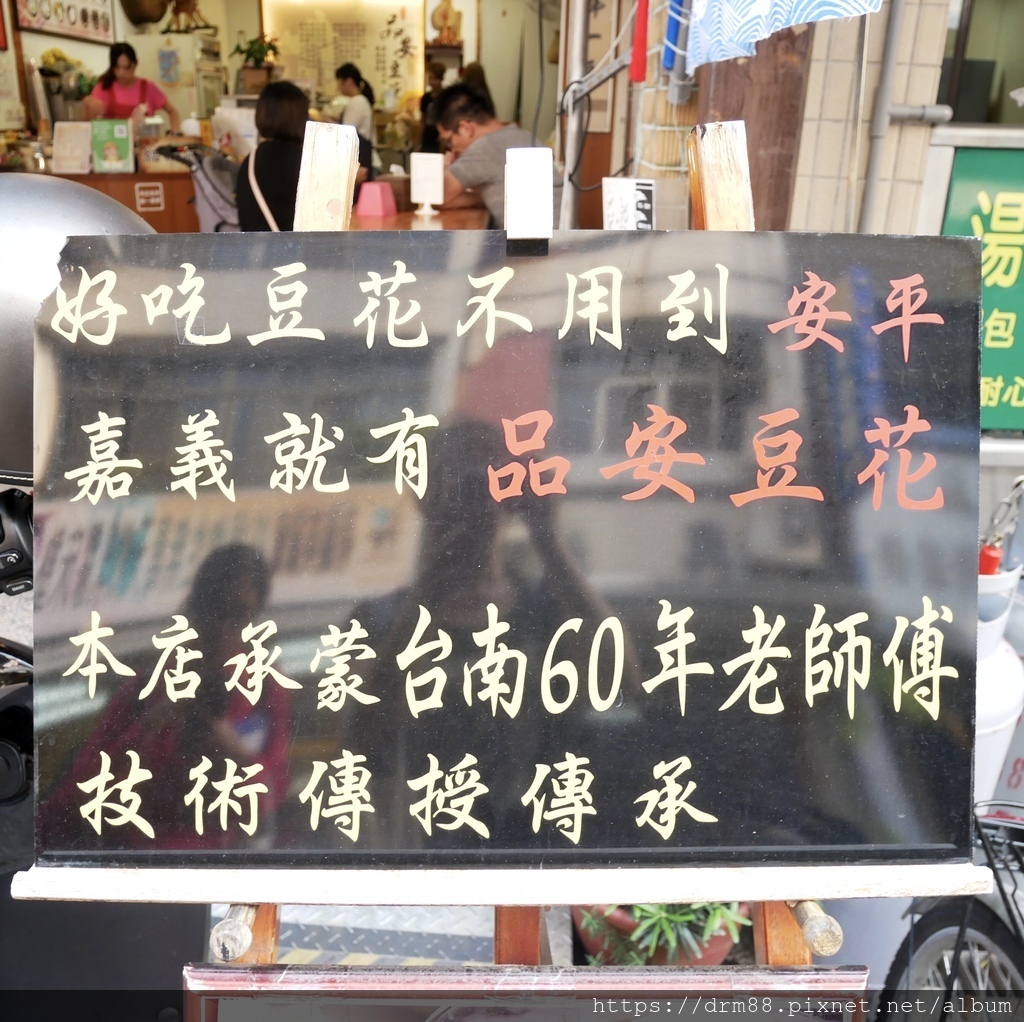 好吃豆花不用到安平
嘉義就有品安豆花
本店承蒙台南60年老師傅
技術傳授傳承
湯
包
耐心
https://drm88.pixnet.net/album